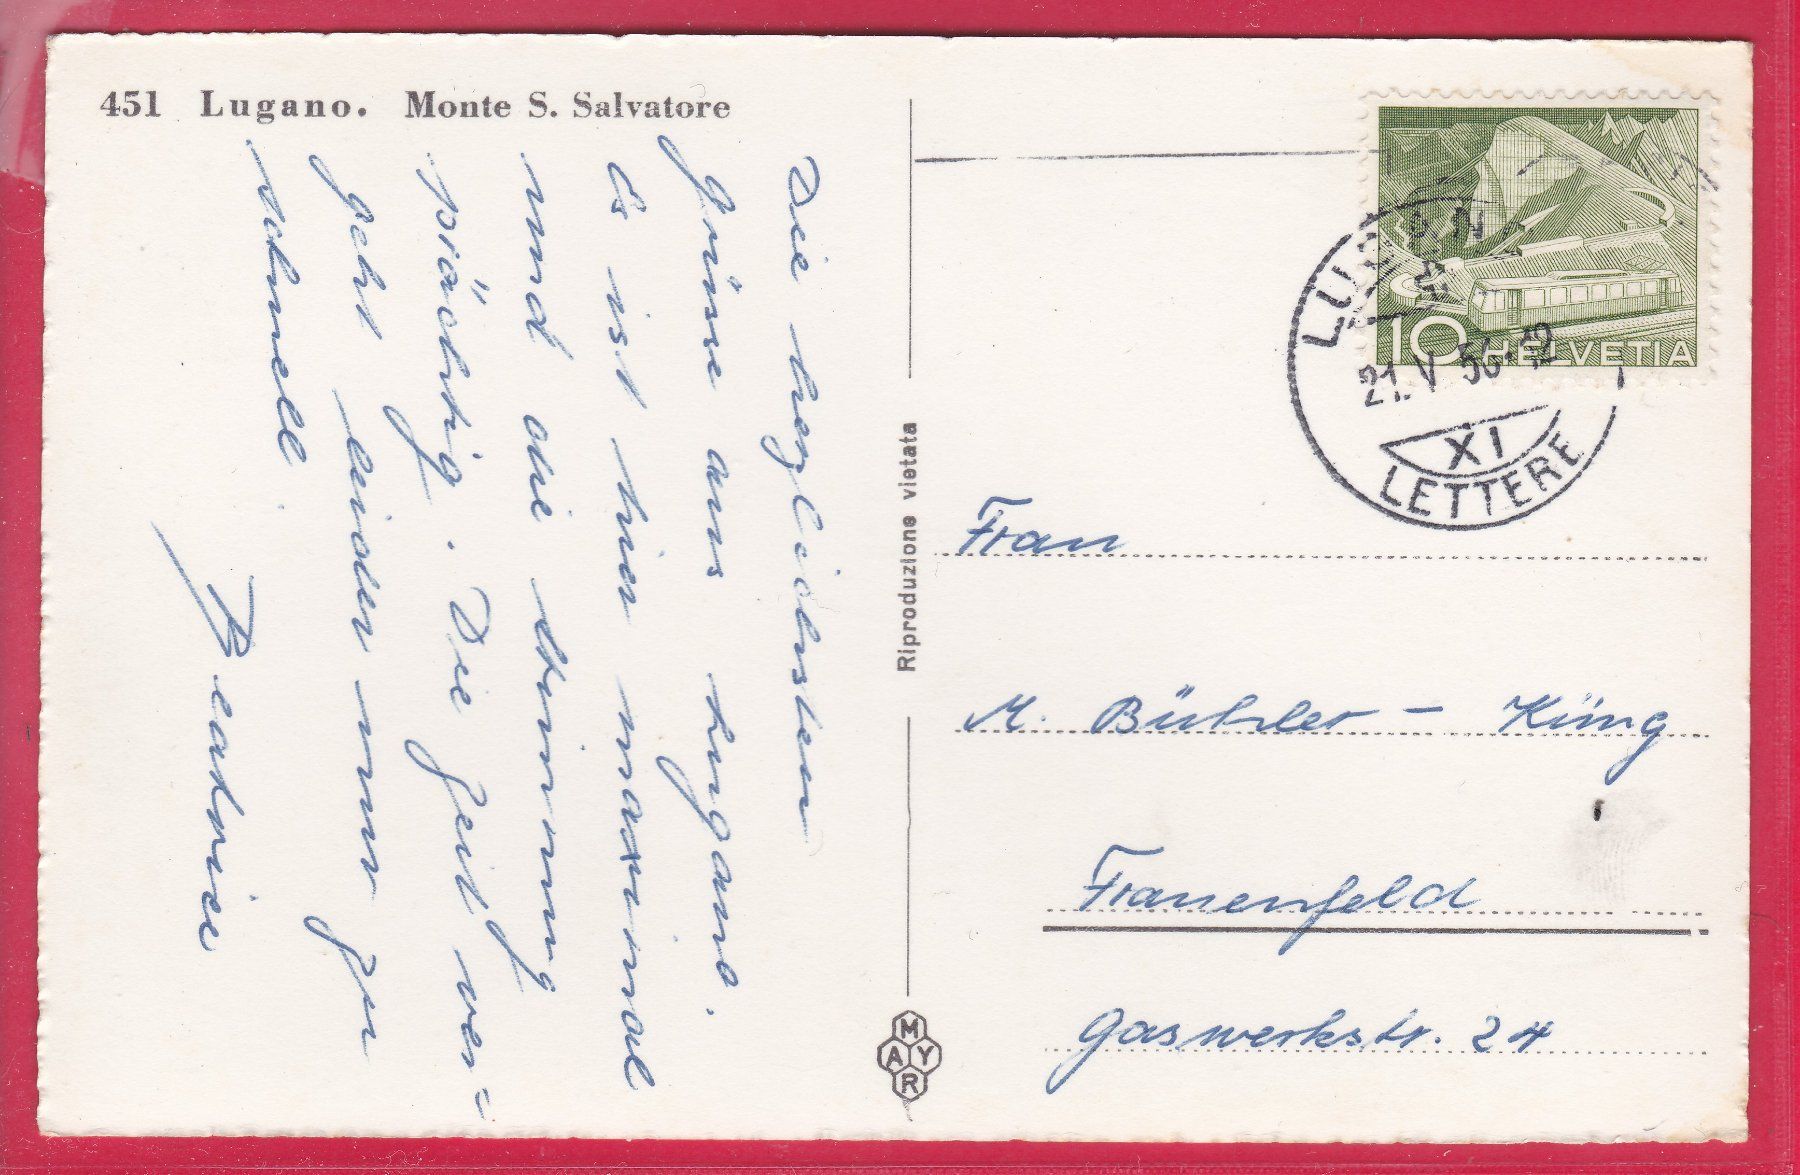 451 Lugano. Monte S. Salvatore
Die herzlichsten
Grüsse aus Lugano.
Es ist hier maximal
und die Stimmung
prächtig. Die Zeit ver=
geht leider nur zu
schnell
Beatrice
Riproduzione vietata
MAYR
10 HELVETIA
21. V 56-12
XI
LETTERE
Frau
M. Bühler - Küng
Frauenfeld
Gaswerkstr. 24